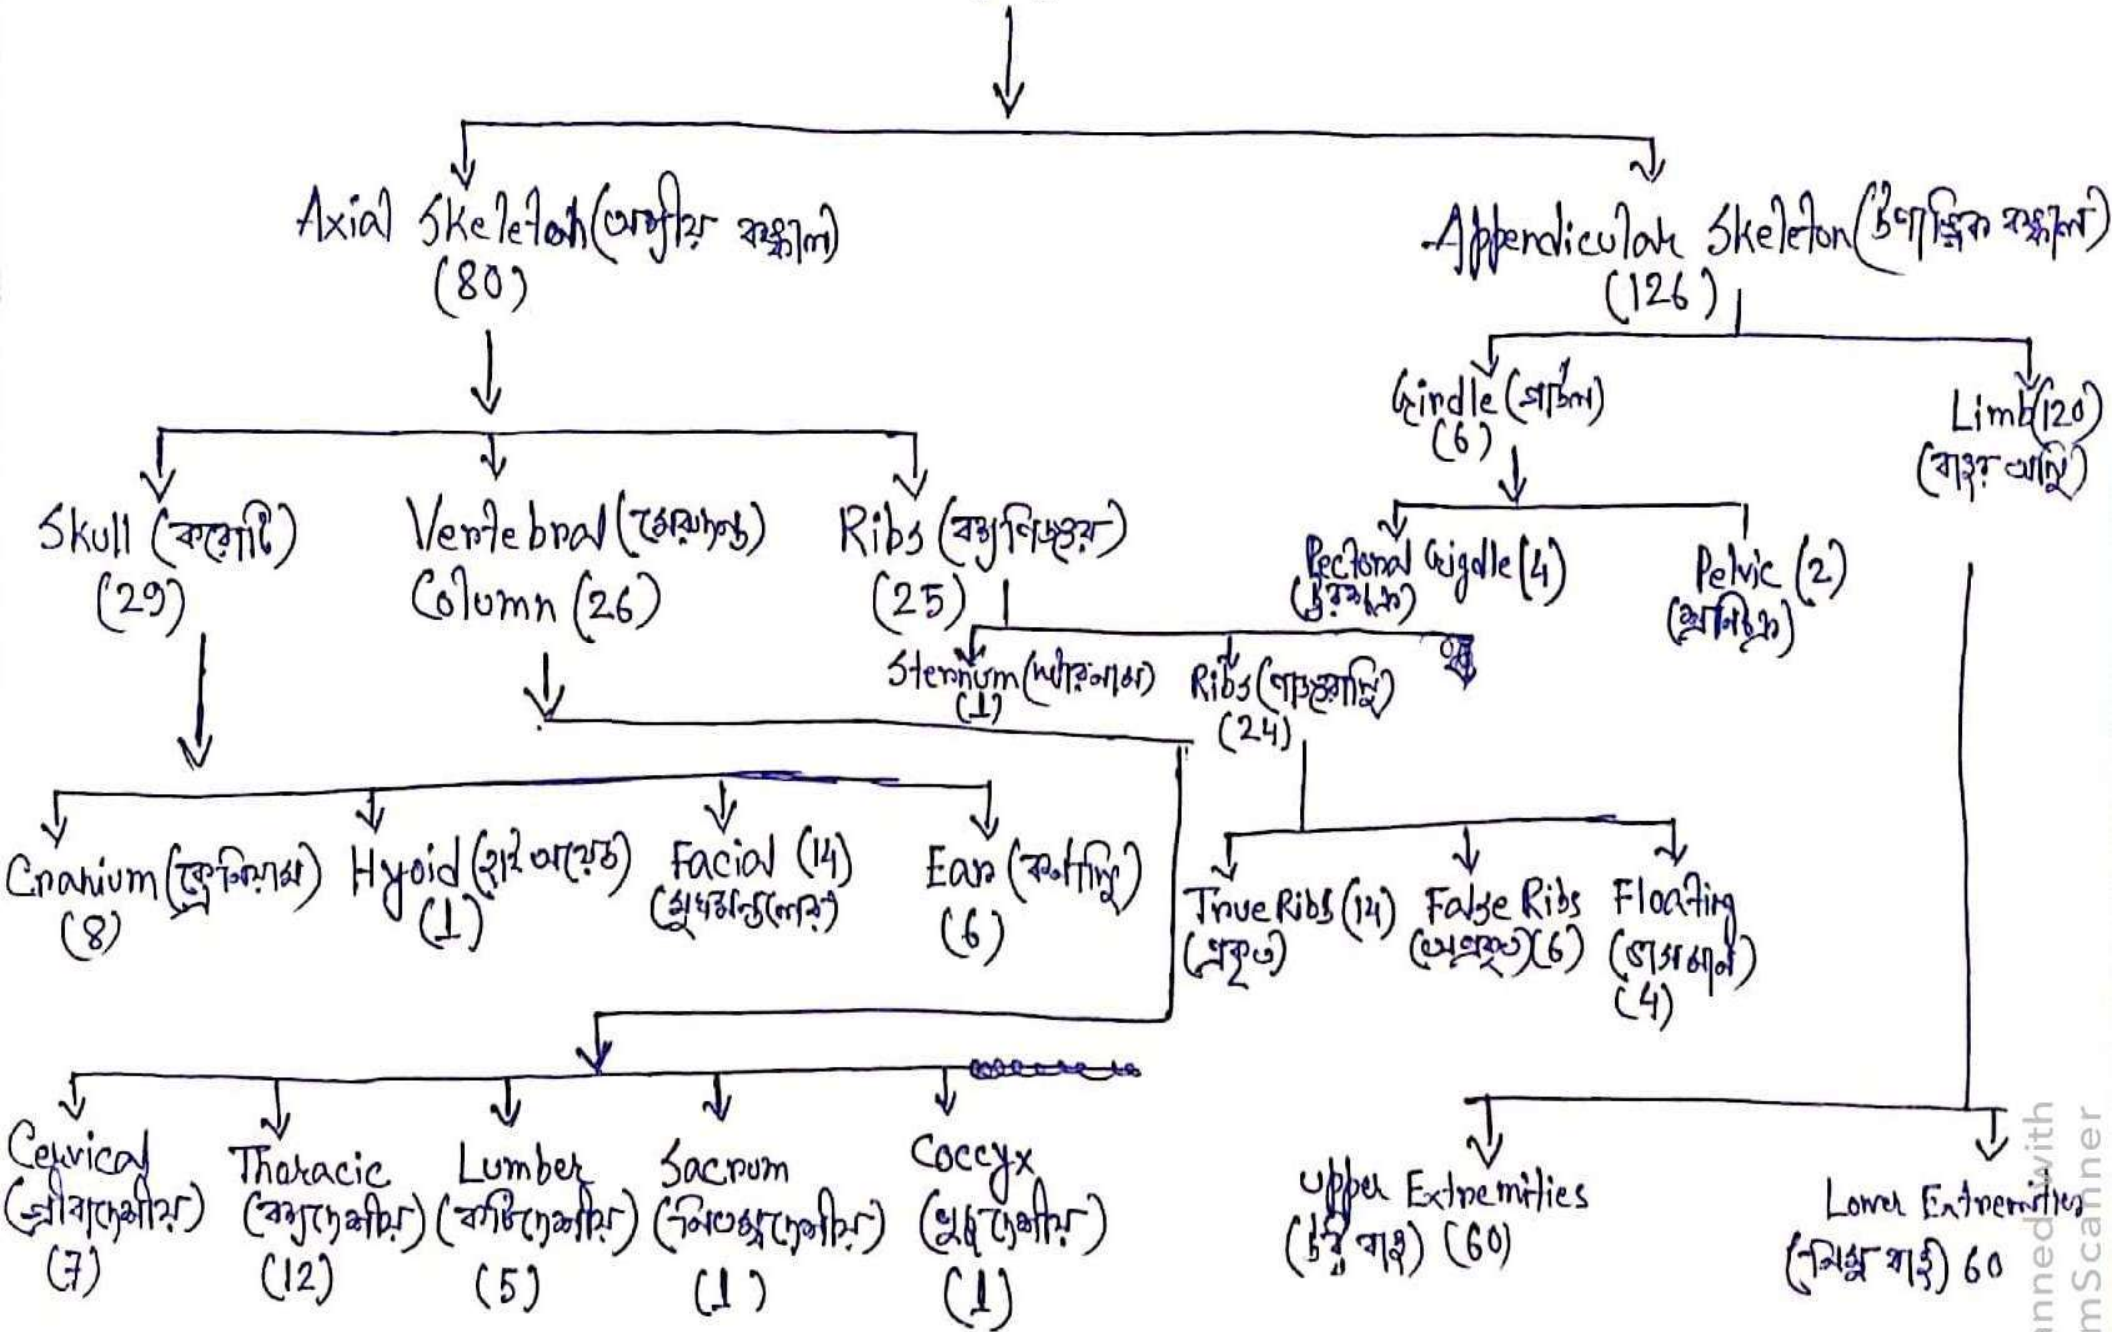 Axial Skeleton (অক্ষীয় কঙ্কাল)
(80)
Appendicular Skeleton (উপাঙ্গিক কঙ্কাল)
(126)
Girdle (গার্ডল)
(6)
Limb (120)
(বাহুর অস্থি)
Skull (করোটি)
(29)
Vertebral (মেরুদন্ড)
Column (26)
Ribs (বক্ষপিঞ্জর)
(25)
Pectoral Girdle (4)
(উরশ্চক্র)
Pelvic (2)
(শ্রোণিচক্র)
Sternum (স্টারনাম)
(1)
Ribs (পাঁজরাস্থি)
(24)
Cranium (ক্রেনিয়াম)
(8)
Hyoid (হাইঅয়েড)
(1)
Facial (14)
(মুখমন্ডলের)
Ear (কর্ণাস্থি)
(6)
True Ribs (14)
(প্রকৃত)
False Ribs
(অপ্রকৃত) (6)
Floating
(ভাসমান)
(4)
Cervical
(গ্রীবাদেশীয়)
(7)
Thoracic
(বক্ষদেশীয়)
(12)
Lumber
(কটিদেশীয়)
(5)
Sacrum
(নিতম্বদেশীয়)
(1)
Coccyx
(পুচ্ছদেশীয়)
(1)
Upper Extremities
(উর্ধ্ব বাহু) (60)
Lower Extremities
(নিম্ন বাহু) 60